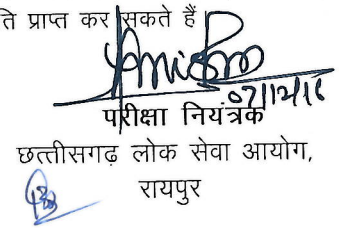 ति प्राप्त कर सकते हैं
07/12/16
परीक्षा नियंत्रक
छत्तीसगढ़ लोक सेवा आयोग,
रायपुर